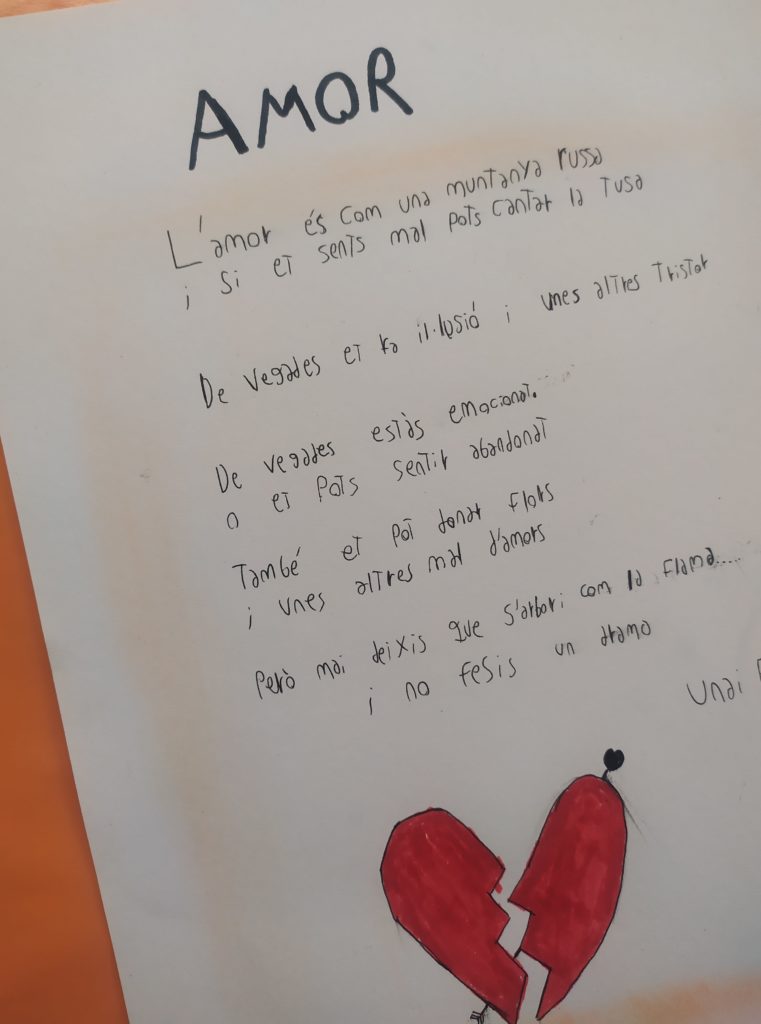 AMOR
L'amor és com una muntanya russa
i si et sents mal pots cantar la tusa
De vegades et fa il·lusió i unes altres tristor
De vegades estàs emocionat.
o et pots sentir abandonat
També et pot donar flors
i unes altres mal d'amors
Però mai deixis que s'arbori com la flama.....
i no fesis un drama
Unai